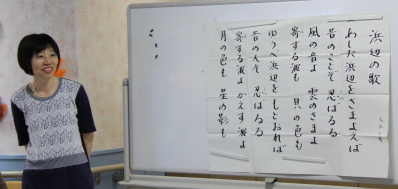 浜辺の歌
あした浜辺をさまよえば
昔のことぞ 忍ばるる
風の音よ 雲のさまよ
寄する波も 貝の色も
ゆうべ浜辺をもとおれば
昔の人ぞ 忍ばるる
寄する波よ かえす波よ
月の色も 星の影も